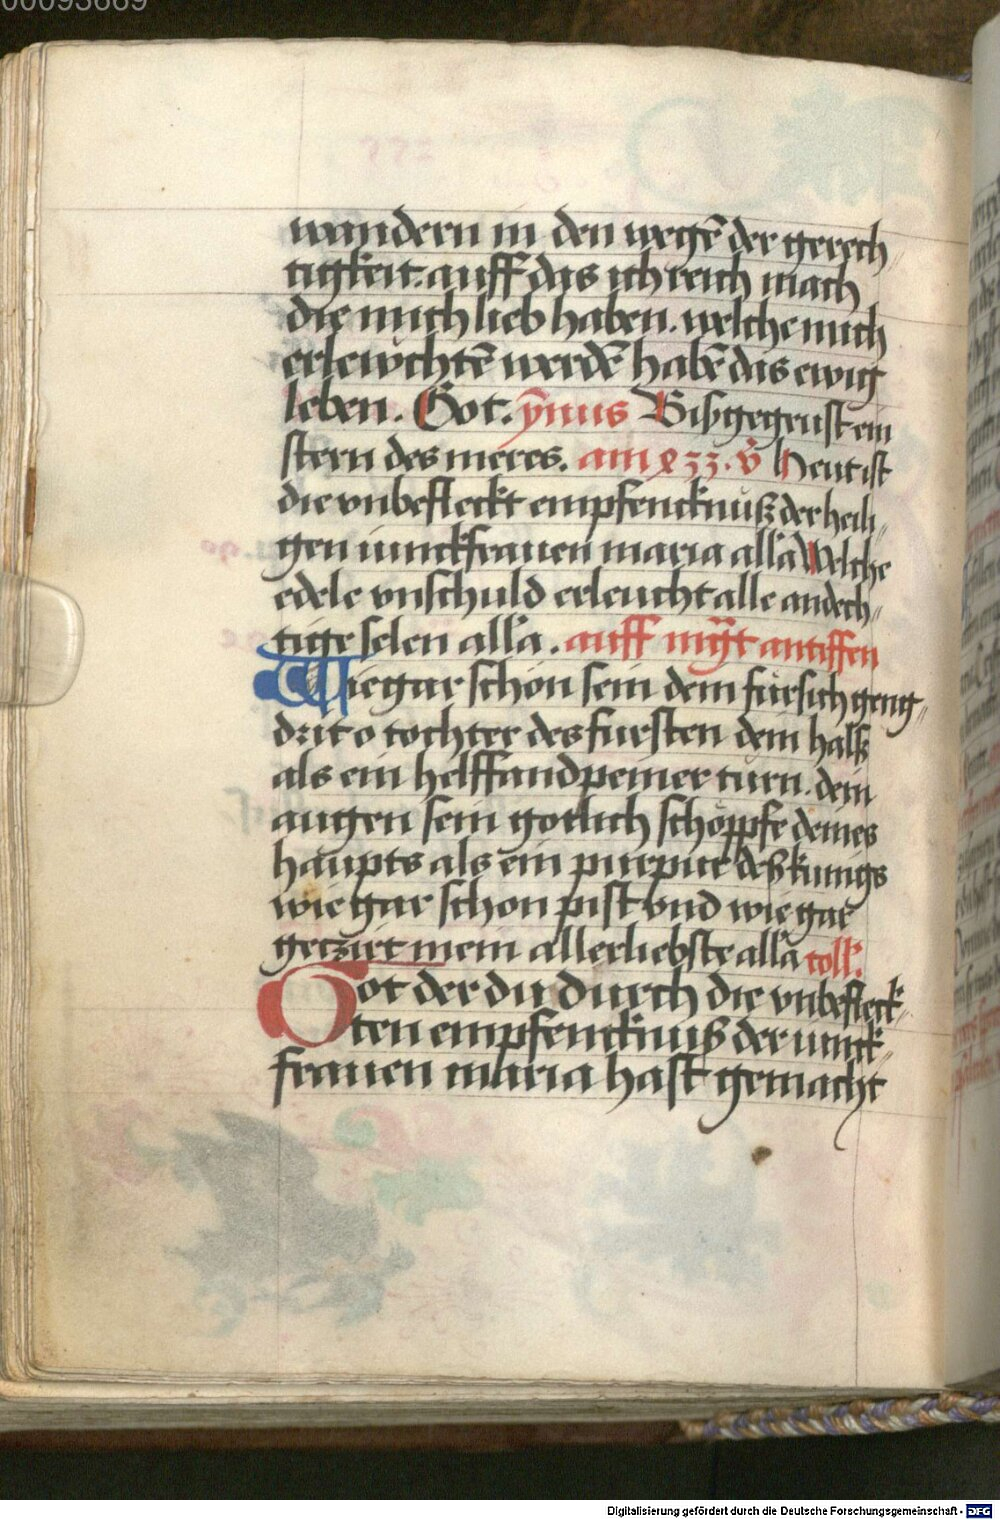 00093669
wandern in den wegē der gerech
tigkeit. auff das ich reich mach
die mich lieb haben. welche mich
erlewchtē werdē habē das ewig
leben. Got. ỹnus Bisgegeust ein
stern des meres. am v̄ Heut ist
die vnbefleckt empfencknuß der heili
gen iunckfrauen maria alla Welche
edele vnschuld erleucht alle andech
tige selen alla. auff mgt̄ antiffen
Wie gar schon sein dem fursich geng
drit o tochter des fursten dein halß
als ein helffandpeiner turn. dein
augen sein gotlich schöppfe deines
haupts als ein purpur deß kunigs
wie gar schon pist vnd wie gar
geczirt mein allerliebste alla coll.
Got der du durch die vnbefleck
ten empfencknuß der iunck
frauen maria hast gemacht
Digitalisierung gefördert durch die Deutsche Forschungsgemeinschaft - DFG